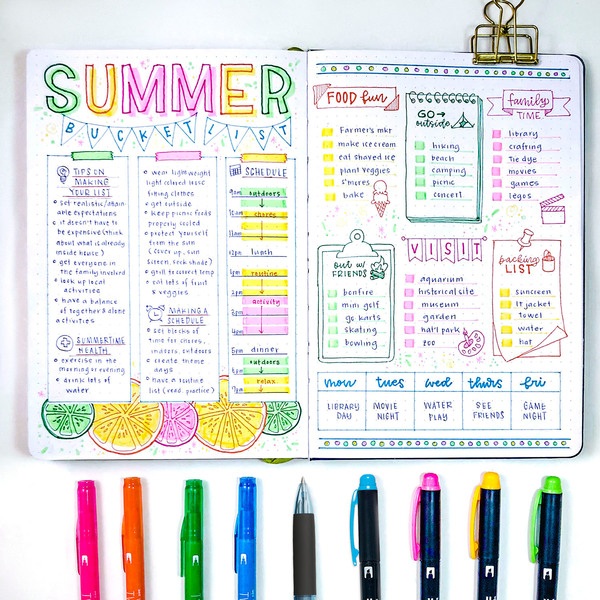 SUMMER
BUCKET LIST
TIPS ON
MAKING
YOUR LIST
set realistic/attain-
able expectations
it doesn't have to
be expensive (think
about what is already
inside house)
get everyone in
the family involved
look up local
activities
have a balance
of together & alone
activities
SUMMERTIME
HEALTH
exercise in the
morning or evening
drink lots of
water
wear lightweight
light colored loose
fitting clothes
get outside
keep picnic foods
properly sealed
protect yourself
form the sun
(cover up, sun
screen, seek shade)
grill to correct temp
eat lots of fruit
& veggies
MAKING A
SCHEDULE
set blocks of
time for chores,
indoors, outdoors
create theme
days
have a routine
list (read, practice)
SCHEDULE
9am outdoors
10am chores
11am
12pm lunch
1pm routine
2pm activity
3pm
4pm
5pm dinner
6pm outdoors
relax
7pm
FOOD fun
Farmer's mkt
make ice cream
eat shaved ice
plant veggies
s'mores
bake
GO →
outside
hiking
beach
camping
picnic
concert
family
TIME
library
crafting
tie dye
movies
games
legos
out w/
FRIENDS
bonfire
mini golf
go karts
skating
bowling
VISIT
aquarium
historical site
museum
garden
nat'l park
zoo
packing
LIST
sunscreen
lt jacket
towel
water
hat
mon tues wed thurs fri
LIBRARY DAY
MOVIE NIGHT
WATER PLAY
SEE FRIENDS
GAME NIGHT